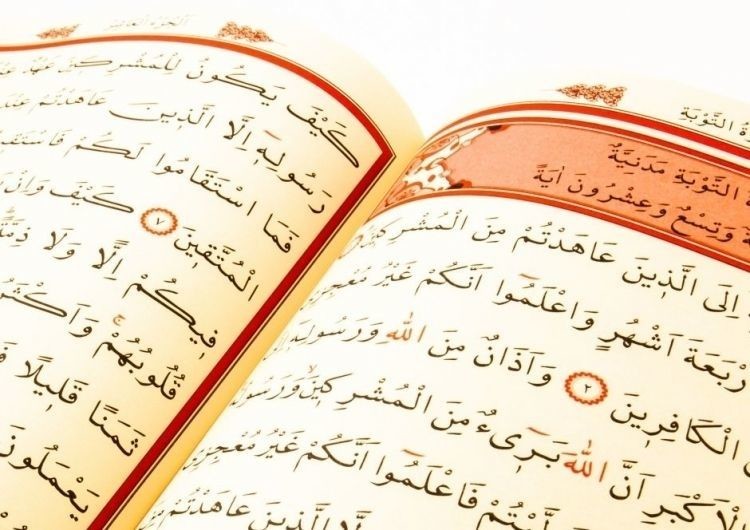 التَّوْبَةِ
التَّوْبَةِ مَدَنِيَّةٌ
وَتِسْعٌ وَعِشْرُونَ اٰيَةً
اِلَى الَّذِينَ عَاهَدْتُمْ مِنَ الْمُشْرِكِينَ
اَشْهُرٍ وَاعْلَمُوا اَنَّكُمْ غَيْرُ مُعْجِزِي
الْكَافِرِينَ ٢ وَاَذَانٌ مِنَ اللّٰهِ وَرَسُولِهِ
الْاَكْبَرِ اَنَّ اللّٰهَ بَرِيءٌ مِنَ الْمُشْرِكِينَ وَرَسُولُهُ
فَاعْلَمُوا اَنَّكُمْ غَيْرُ مُعْجِزِي
الَّذِينَ عَاهَدْتُمْ
كَيْفَ يَكُونُ لِلْمُشْرِكِينَ عَهْدٌ عِنْدَ
رَسُولِهِ اِلَّا الَّذِينَ عَاهَدْتُمْ عِنْدَ
فَمَا اسْتَقَامُوا لَكُمْ فَاسْتَقِيمُوا
الْمُتَّقِينَ ٧ كَيْفَ وَاِنْ
فِيكُمْ اِلًّا وَلَا ذِمَّةً
قُلُوبُهُمْ وَاَكْثَرُ
ثَمَنًا قَلِيلًا
يَعْمَلُونَ